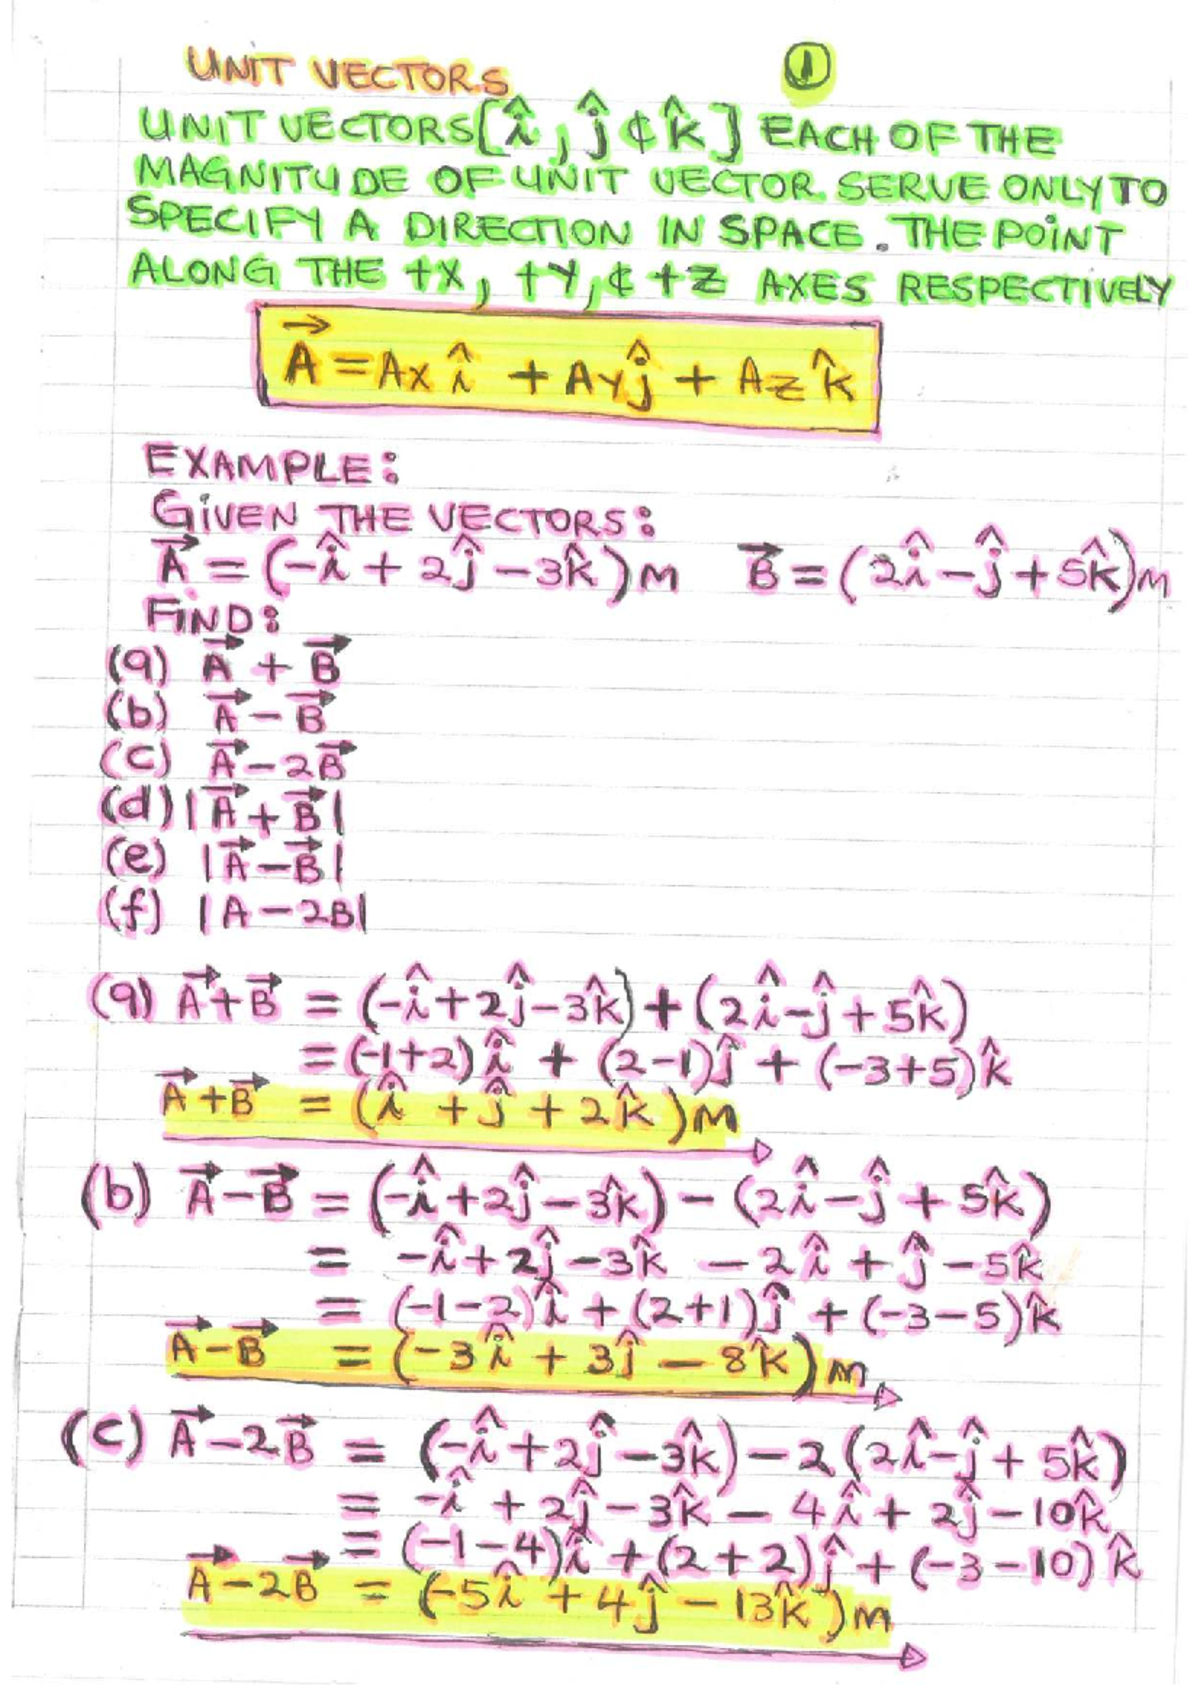 UNIT VECTORS
①
UNIT VECTORS [î, ĵ ¢ k̂] EACH OF THE
MAGNITUDE OF UNIT VECTOR SERVE ONLY TO
SPECIFY A DIRECTION IN SPACE. THE POINT
ALONG THE +X, +Y, ¢ +Z AXES RESPECTIVELY
A⃗ = Ax î + Ayĵ + Az k̂
EXAMPLE:
GIVEN THE VECTORS:
A⃗ = (-î + 2ĵ - 3k̂)m B⃗ = (2î - ĵ + 5k̂)m
FIND:
(a) A⃗ + B⃗
(b) A⃗ - B⃗
(c) A⃗ - 2B⃗
(d) |A⃗ + B⃗|
(e) |A⃗ - B⃗|
(f) |A - 2B|
(a) A⃗ + B⃗ = (-î + 2ĵ - 3k̂) + (2î - ĵ + 5k̂)
= (-1+2)î + (2-1)ĵ + (-3+5)k̂
A⃗ + B⃗ = (î + ĵ + 2k̂)m
(b) A⃗ - B⃗ = (-î + 2ĵ - 3k̂) - (2î - ĵ + 5k̂)
= -î + 2ĵ - 3k̂ - 2î + ĵ - 5k̂
= (-1-2)î + (2+1)ĵ + (-3-5)k̂
A⃗ - B⃗ = (-3î + 3ĵ - 8k̂)m
(c) A⃗ - 2B⃗ = (-î + 2ĵ - 3k̂) - 2(2î - ĵ + 5k̂)
= -î + 2ĵ - 3k̂ - 4î + 2ĵ - 10k̂
= (-1-4)î + (2+2)ĵ + (-3-10)k̂
A⃗ - 2B⃗ = (-5î + 4ĵ - 13k̂)m